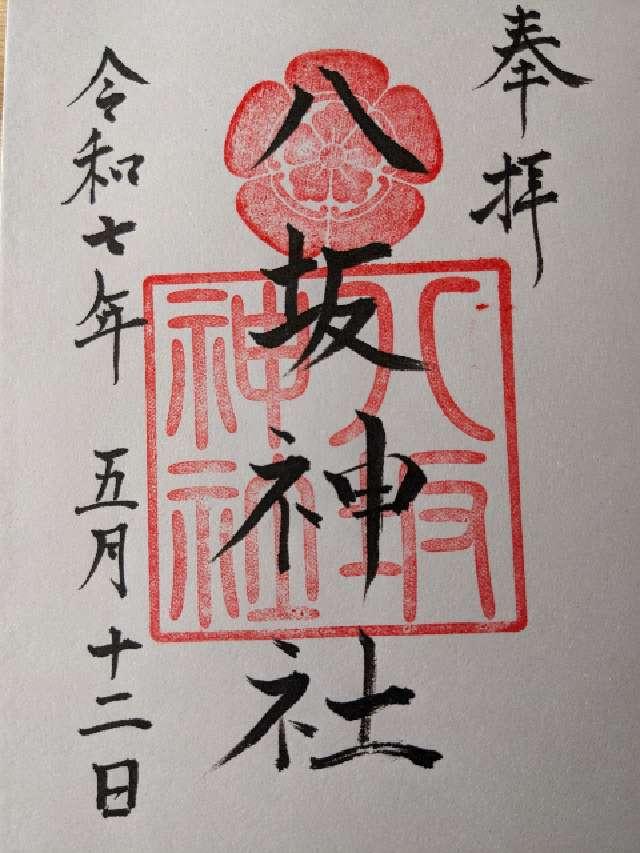 奉拝
八坂神社
八坂神社
令和七年 五月十二日